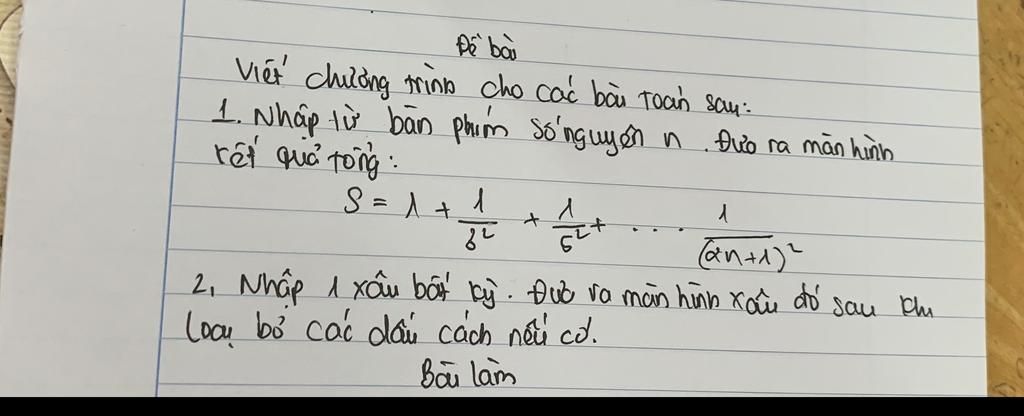 Đề bài
Viết chương trình cho các bài toán sau:
1. Nhập từ bàn phím số nguyên n. Đưa ra màn hình
kết quả tổng:
S = 1 + 1/3² + 1/5² + ... 1/(2n+1)²
2, Nhập 1 xâu bất kỳ. Đưa ra màn hình xâu đó sau khi
loại bỏ các dấu cách nếu có.
Bài làm